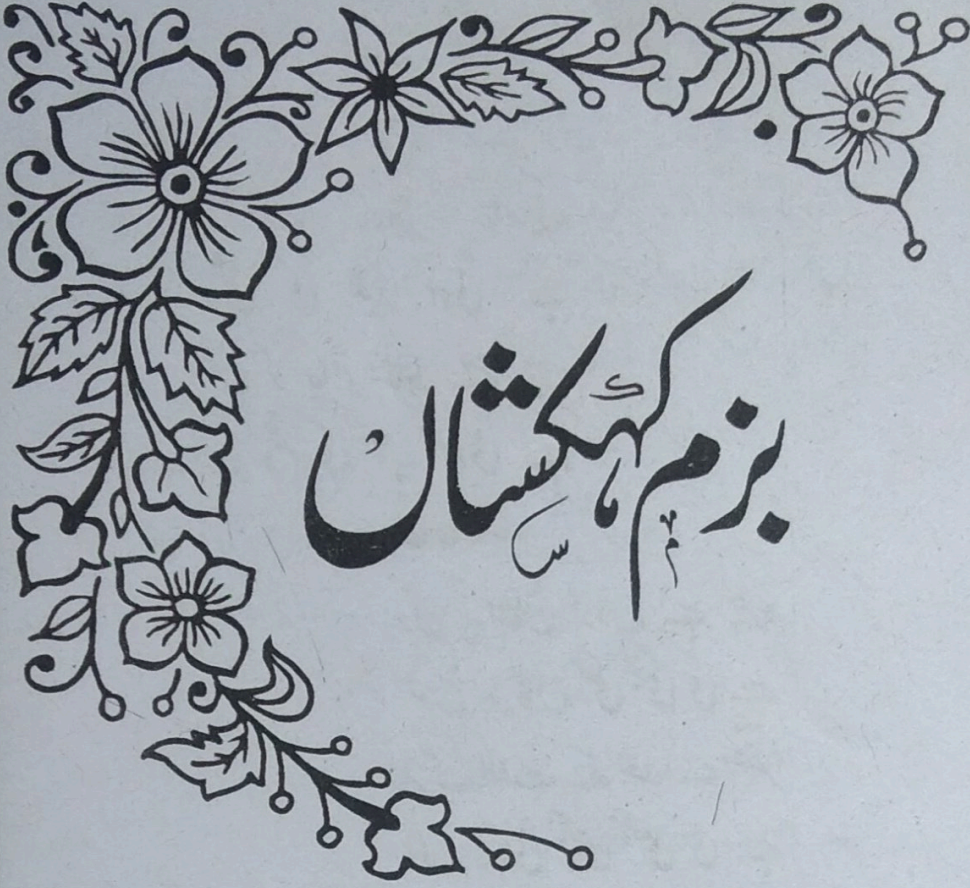 بزم کہکشاں